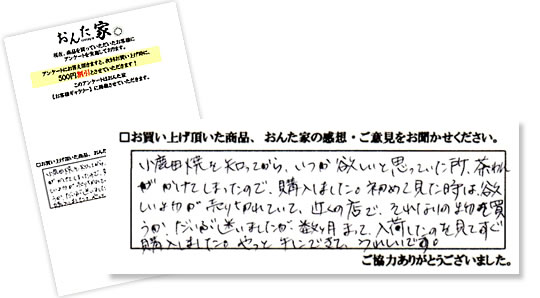 おんた家。
現在、商品を買っていただいたお客様に
アンケートを実施しております。
アンケートにお答え頂きますと、次回お買い上げ時に、
500円割引とさせていただきます!
このアンケートはおんた家
【お客様ギャラリー】に掲載させていただきます。
□お買い上げ頂いた商品、おんた
□お買い上げ頂いた商品、おんた家の感想・ご意見をお聞かせください。
小鹿田焼を知ってから、いつか欲しいと思っていた所、茶わん
がかけてしまったので、購入しました。初めて見た時は、欲
しい物が売り切れていて、近くの店で、それなりの物を買
うか、だいぶ迷いましたが、数ヶ月まって、入荷したのを見てすぐ
購入しました。やっと手にできて、うれしいです。
ご協力ありがとうございました。